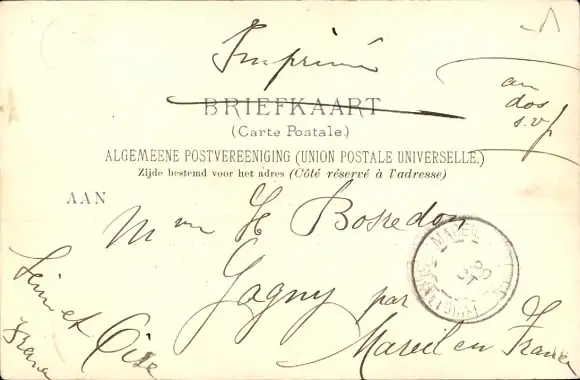 Imprimé
au
dos
s.v.p
BRIEFKAART
(Carte Postale.)
ALGEMEENE POSTVEREENIGING (UNION POSTALE UNIVERSELLE.)
Zijde bestemd voor het adres (Côté réservé à l'adresse)
AAN
Mme H Bosredon
Gagny par
Mareil en France
Seine et Oise
France
MAREIL